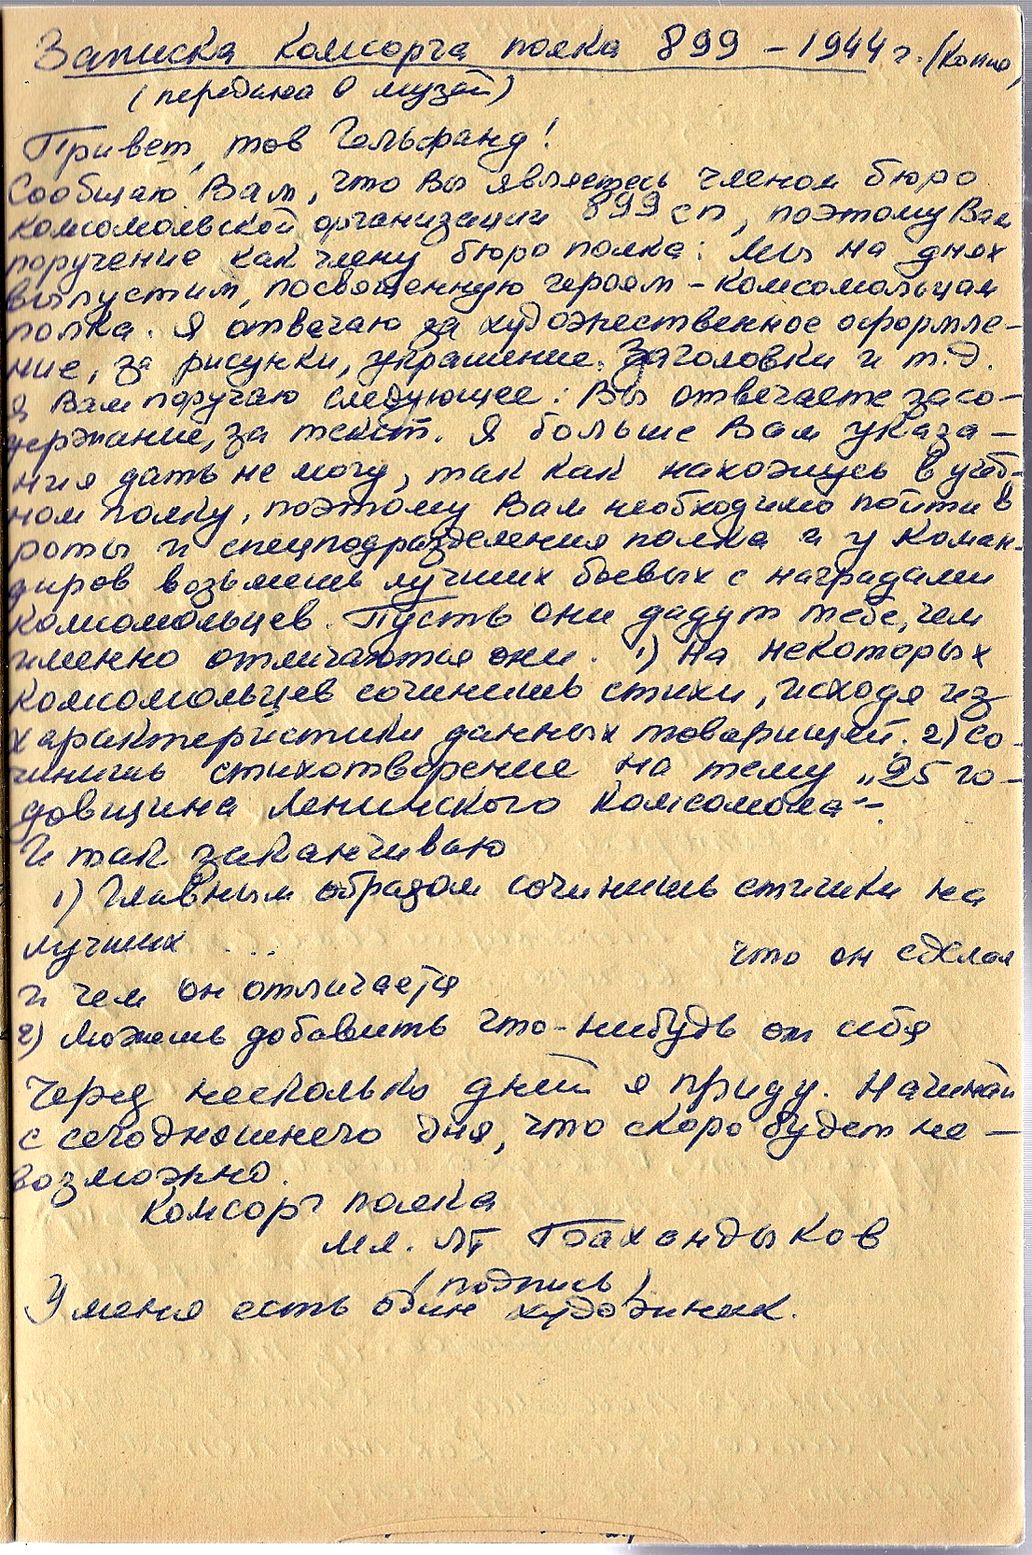 Записка комсорга полка 899 – 1944 г. (Копия)
(передана в музей)
Привет, тов Гельфанд!
Сообщаю Вам, что Вы являетесь членом бюро
комсомольской организации 899 сп, поэтому Вам
поручение как члену бюро полка: Мы на днях
выпустим, посвященную героям – комсомольцам
полка. Я отвечаю за художественное оформле-
ние, за рисунки, украшение. Заголовки и т.д.
я Вам поручаю следующее: Вы отвечаете за со-
держание, за текст. Я больше Вам указа-
ния дать не могу, так как нахожусь в учеб-
ном полку, поэтому Вам необходимо пойти в
роты и спецподразделения полка и у коман-
диров возьмешь лучших боевых с наградами
комсомольцев. Пусть они дадут тебе, чем
именно отличаются они. 1) На некоторых
комсомольцев сочинишь стихи, исходя из
характеристики данных товарищей. 2) Со-
чинишь стихотворение на тему „25 го-
довщина Ленинского комсомола“ –
И так заканчиваю
1) Главным образом сочинишь стишки на
лучших ... что он сделал
и чем он отличается
2) Можешь добавить что-нибудь от себя
Через несколько дней я приду. Начинай
с сегодняшнего дня, что скоро будет не-
возможно.
Комсорг полка
мл. лт
(подпись)
У меня есть один художник.